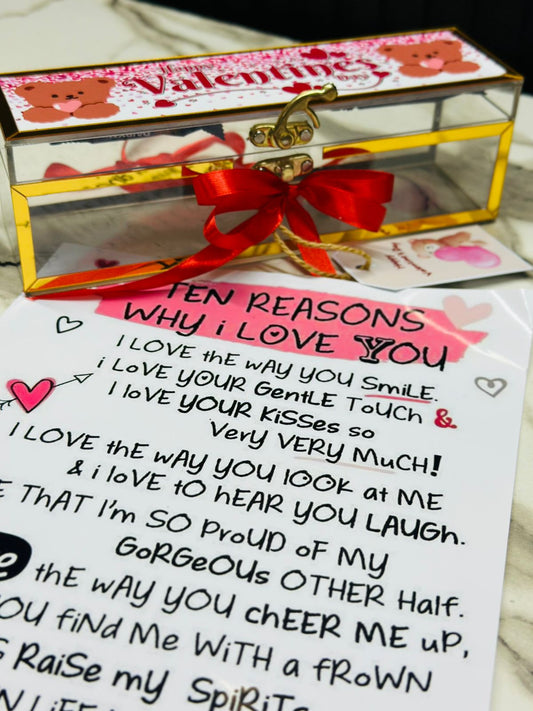 Happy
Valentine's
Day
TEN REASONS
WHY i LOVE YOU
I LOVE thE WAY YOU SmiLE.
i LoVE YOUR GentLE ToUCH &
I loVE YOUR KiSSes so
VeRy VERY MuCH!
I LOVE thE WAY YOU lOOK at ME
& i loVE tO hEAR YOU LAUGh.
ThAT I'm SO PRoUD oF MY
GoRGeOUs OTHER Half.
thE WAY YOU chEER ME uP,
YOU fiNd Me WiTH a fRoWN
RaiSe my SpiRiTs
LiFE